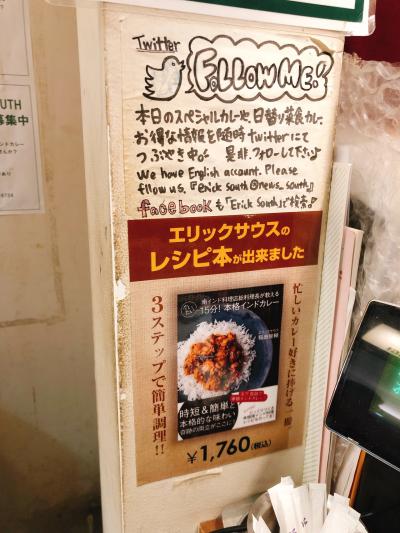 Twitter
FOLLOW ME!!
本日のスペシャルカレーや、日替り菜食カレー
お得な情報を随時twitterにて
つぶやき中♪ 是非、フォローして下さい♪
We have English account. Please
fllow us.『erick south@news_south』
facebookも「Erick South」で検索!
エリックサウスの
レシピ本が出来ました
忙しいカレー好きに捧げる一冊
3ステップで簡単調理!!
南インド料理店総料理長が教える
15分!本格インドカレー
稲田俊輔
時短&簡単と
本格的な味わい
奇跡の両立がここに!
¥1,760(税込)
UTH
募集中